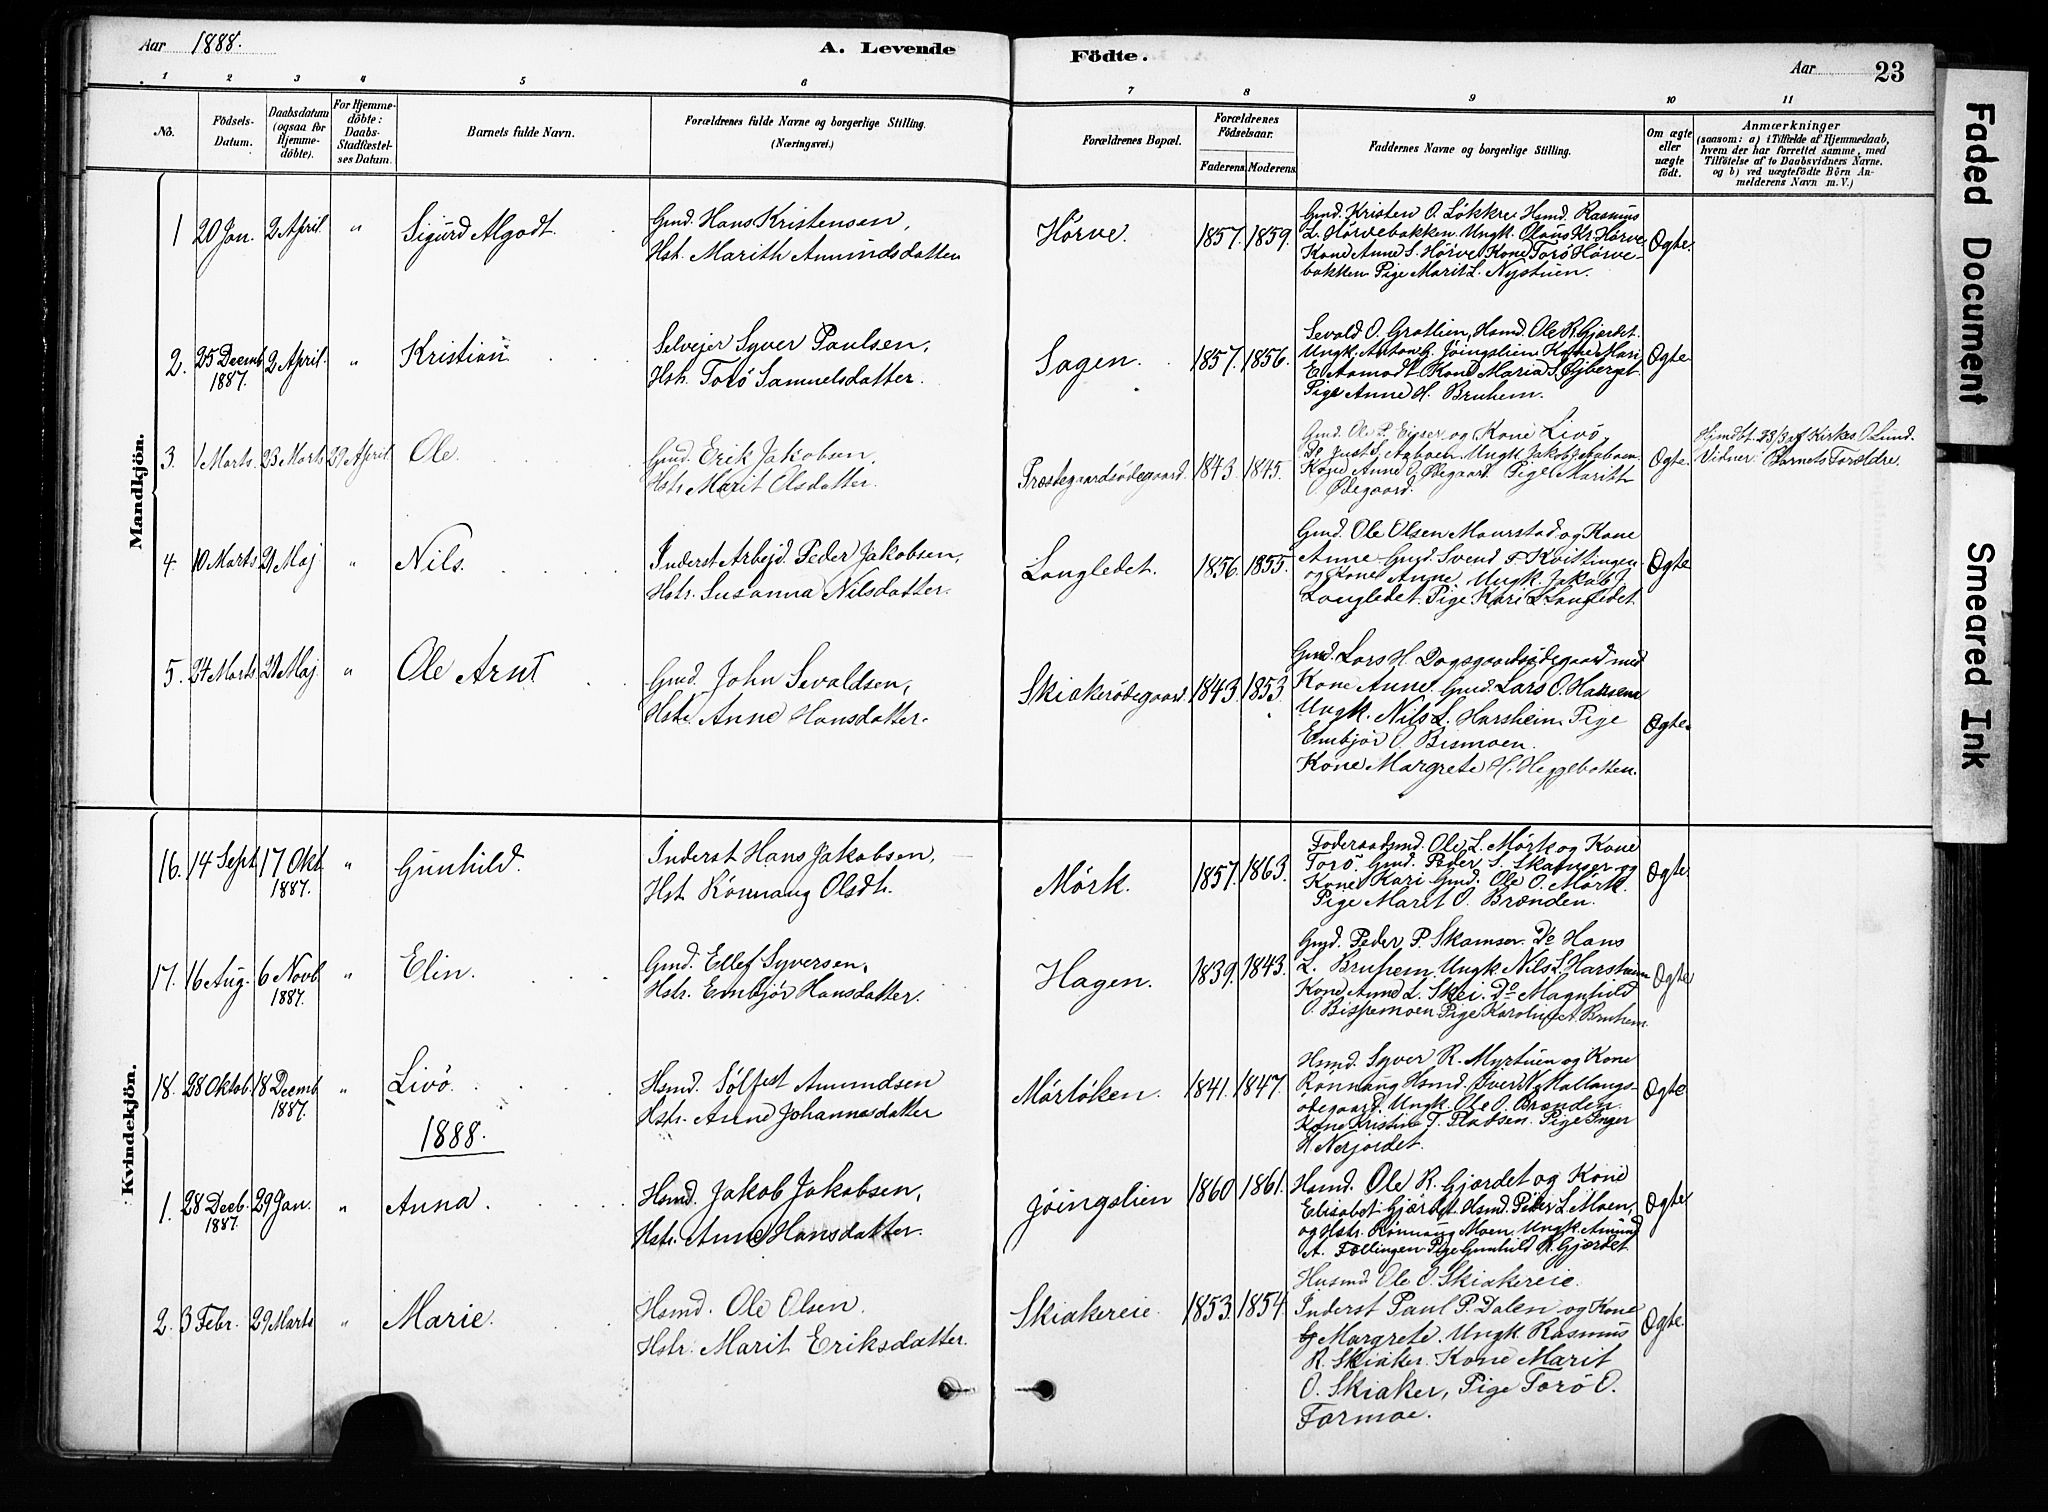 Aar 1888.
A. Levende Födte.
Aar 23
1 2 3 4 5 6 7 8 9 10 11
No.
Födsels-Datum.
Daabsdatum (ogsaa for Hjemmedöbte).
For Hjemmedöbte: Daabs-Stadfæstelses Datum.
Barnets fulde Navn.
Forældrenes fulde Navne og borgerlige Stilling. (Næringsvei.)
Forældrenes Bopæl.
Forældrenes Födselsaar.
Faderens. Moderens.
Faddernes Navne og borgerlige Stilling.
Om ægte eller uægte födt.
Anmærkninger
(saasom: a) i Tilfælde af Hjemmedaab,
hvem der har forrettet samme, med
Tilföielse af to Daabsvidners Navne.
og b) ved uægtefödte Börn An-
melderens Navn m. V.)
Mandkjön.
1 20 Jan. 2 April. " Sigurd Algodt.
Gmd. Hans Kristensen,
Hst. Marith Amundsdatter
Hörve. 1857. 1859.
Gmd. Kristen O. Lökkre Hsmd. Rasmus
L. Hörvebakken. Ungk. Olaus Kr. Hörve
Kone Anne S. Hörve Kone Torö Hörve-
bakken Pige Marit L. Nystuen.
Ogte.
2. 25 Decemb 1887. 2 April. " Kristian
Selvejer Syver Paulsen,
Hstr. Torö Samuelsdatter.
Sagen. 1857. 1856.
Sevald O. Grotlien, Hsmd. Ole R. Gjerdet.
Ungk. Anton G. Jöingslien Kone Mari
E. Aamodt Kone Maria S. Öyberget
Pige Anne H. Bruhem.
Ogte.
3. 1 Marts. 23 Marts 29 April Ole.
Gmd. Erik Jakobsen,
Hstr. Marit Olsdatter.
Præstegaardsödegaard. 1843. 1845.
Gmd. Ole L. og Kone Livö,
Do Just S. Aaboen Ungk. Jakob J. Aaboen
Kone Anne O. Ödegaard. Pige Marith
O. Ödegaard.
Ogte.
Hjmdbt. 23/3 af Kirkes. O. Lund.
Vidner: Barnets Forældre.
4. 10 Marts 21 Maj " Nils.
Inderst Arbejd. Peder Jakobsen,
Hstr. Susanna Nilsdatter.
Langledet. 1856. 1855.
Gmd. Ole Olsen Maurstad og Kone
Anne Gmd. Svend F. Kvittingen
og Kone Anne, Ungk. Jakob J.
Langledet Pige Kari L. Langledet
Ogte
5. 24 Marts 21 Maj " Ole Arnt
Gmd. John Sevaldsen,
Hstr. Anne Hansdatter.
Skiakerödegaard. 1843. 1853.
Gmd. Lars H. Dagsgaardsödegaard med
Kone Anne. Gmd. Lars O. Hansem
Ungk. Nils L. Harsheim Pige
Embjör O. Bismoen.
Kone Margrete H. Heggebotten.
Ogte.
Kvindekjön.
16. 14 Sept. 17 Okt. 1887. " Gunhild.
Inderst Hans Jakobsen,
Hst. Rönnaug Olsdt.
Mörk. 1857. 1863.
Föderaadsmd. Ole L. Mörk og Kone
Torö Gmd. Peder S. Skamser og
Kone Kari Gmd. Ole O. Mörk.
Pige Marit O. Brænden.
Ogte.
17. 16 Aug. 6 Novb. 1887. " Elin.
Gmd. Ellef Syversen,
Hstr. Embjör Hansdatter.
Hagen. 1839. 1843.
Gmd. Peder P. Skamser. Do Hans
L. Bruhem. Ungk. Nils L. Harsheim
Kone Anne L. Skei. Do Magnhild
O. Bispemoen Pige Karoline A. Bruhem.
Ogte
18. 28 Oktob. 18 Decemb 1887. " Livö.
Hsmd. Sölfest Amundsen
Hstr. Anne Johannesdatter
Mörlöken. 1841. 1847.
Hsmd. Syver R. Myrtuen og Kone
Rönnaug Hsmd. Kvallangs-
ödegaard. Ungk. Ole O. Brænden.
Kone Kristine T. Pladsen. Pige Inger
H. Nerjordet.
Ogte
1888.
1. 28 Decb. 1887. 29 Jan. " Anna.
Hsmd. Jakob Jakobsen,
Hstr. Anne Hansdatter.
Jöingslien 1860 1861.
Hsmd. Ole R. Gjerdet og Kone
Elisabet Gjerdet Hsmd. Peder L. Moen,
og Hstr. Rönnaug Moen. Ungk. Amund
A.Föllingen Pige Gunhild R. Gjerdet
Ogte
2. 3 Febr. 29 Marts " Marie.
Hsmd. Ole Olsen.
Hstr. Marit Eriksdatter.
Skiakereie. 1853. 1854.
Husmd Ole O. Skiakereie.
Inderst Paul P. Dalen og Kone
Margrete. Ungk. Rasmus
R. Skiaker. Kone Marit
O. Skiaker, Pige Torö O.
Formoe.
Ogte.
Faded Document
Smeared Ink